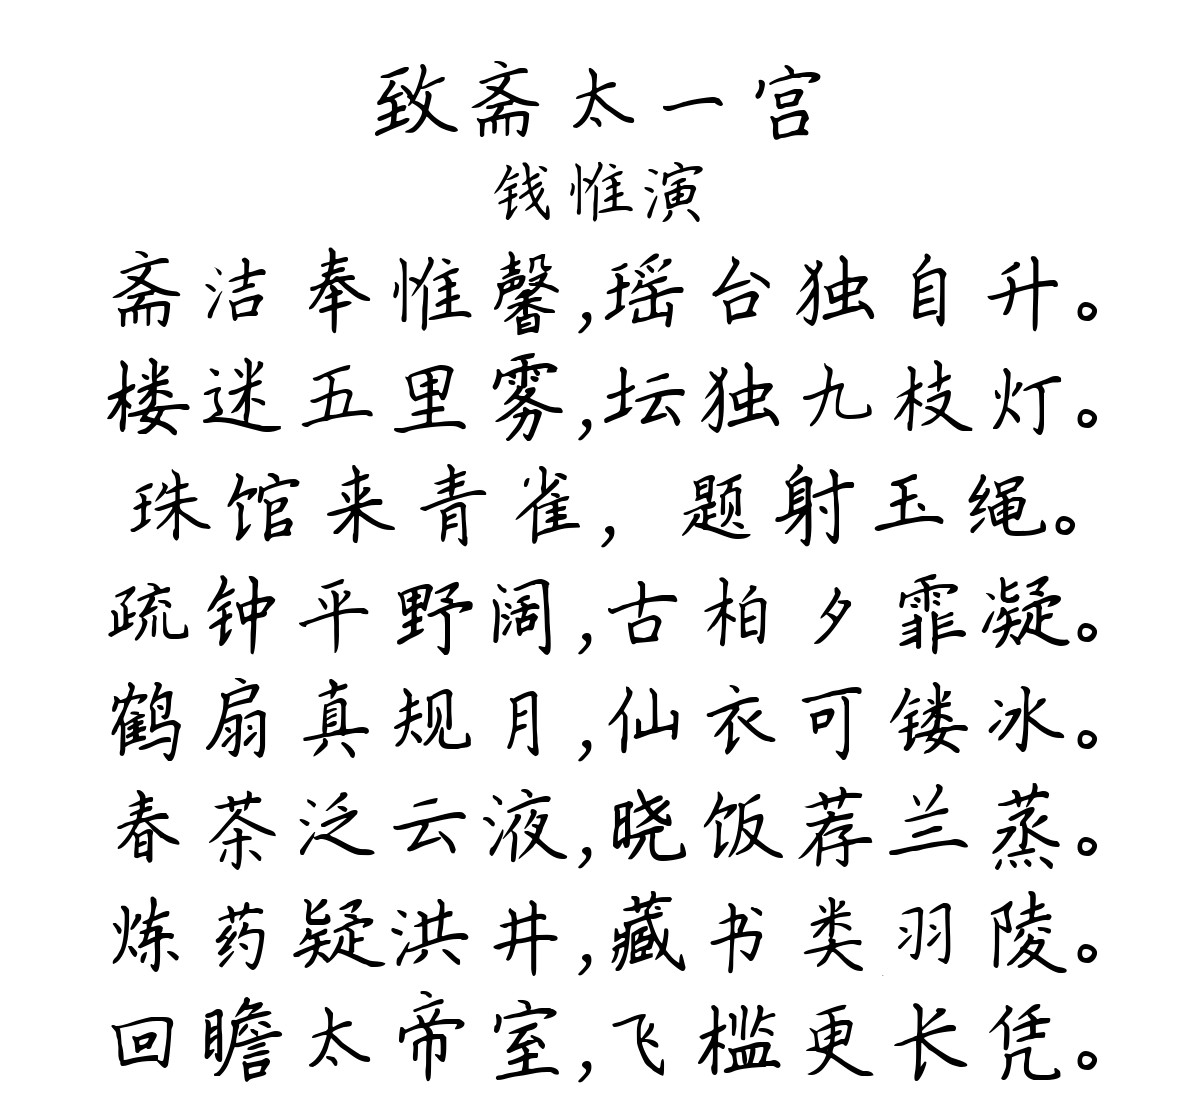 致斋太一宫
钱惟演
斋洁奉惟馨,瑶台独自升。
楼迷五里雾,坛独九枝灯。
珠馆来青雀，题射玉绳。
疏钟平野阔,古柏夕霏凝。
鹤扇真规月,仙衣可镂冰。
春茶泛云液,晓饭荐兰蒸。
炼药疑洪井,藏书类羽陵。
回瞻太帝室,飞槛更长凭。